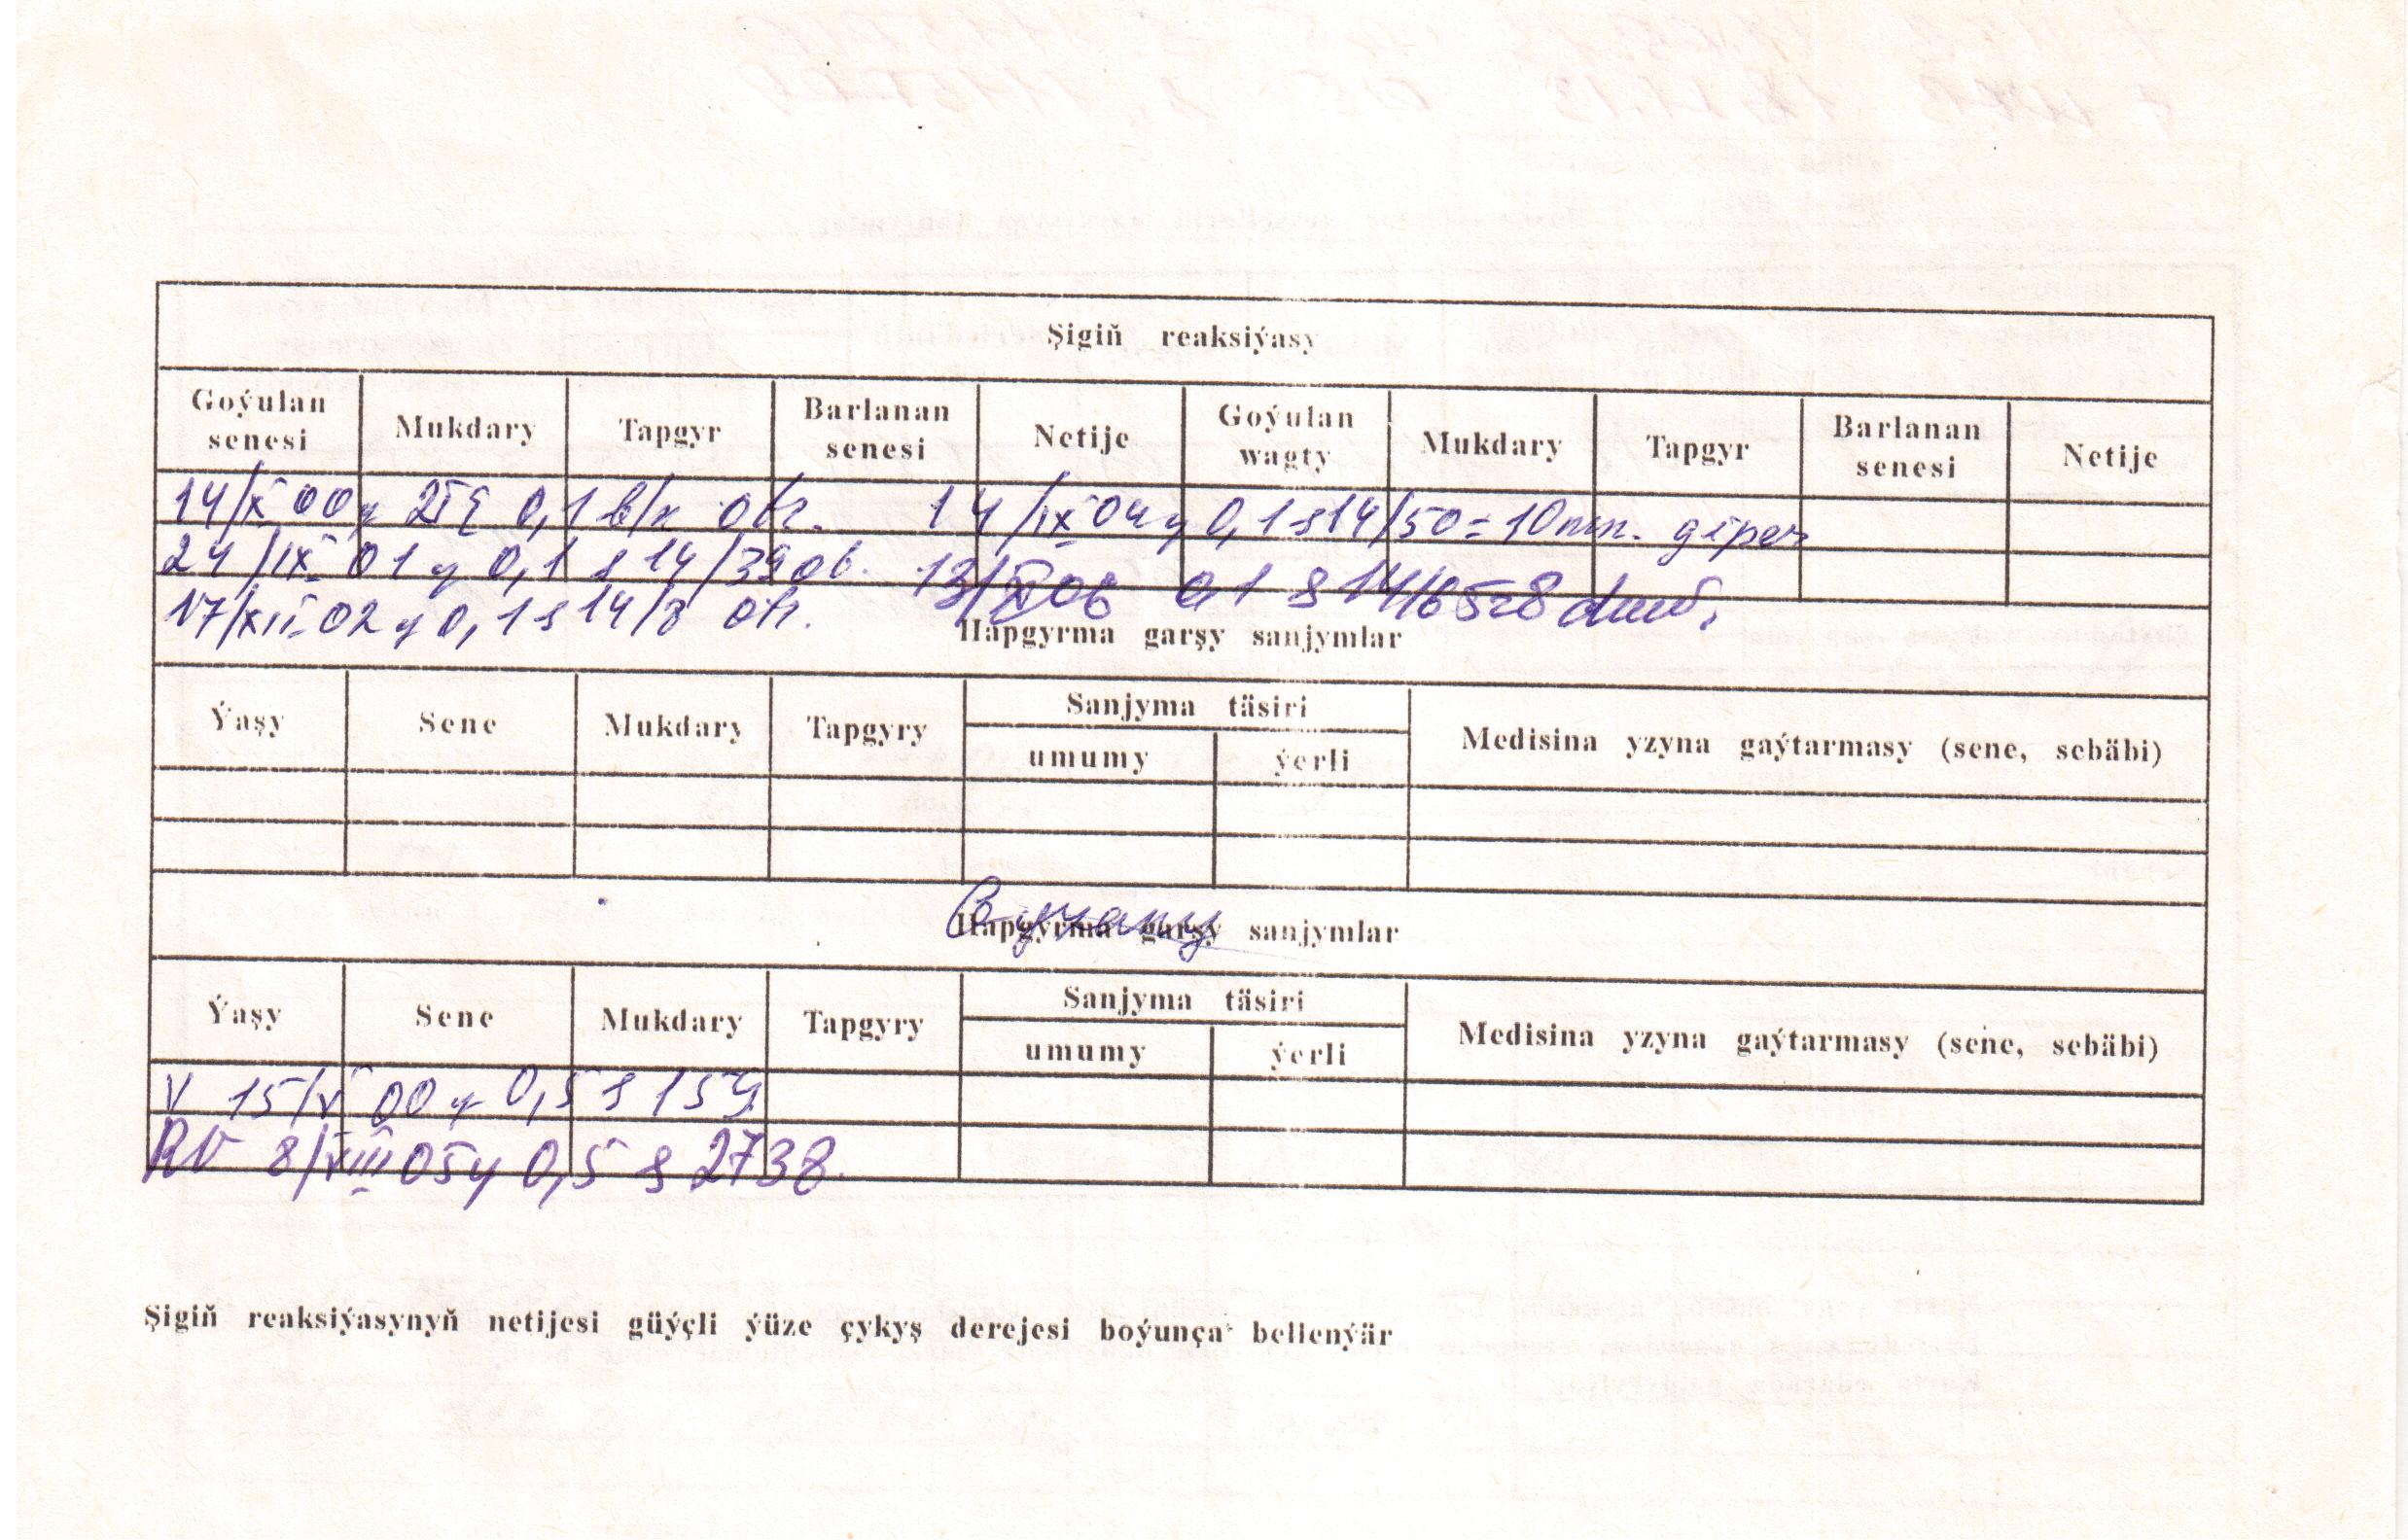 Şigiň reaksiýasy
Goýulan senesi Mukdary Tapgyr Barlanan senesi Netije Goýulan wagty Mukdary Tapgyr Barlanan senesi Netije
14/IX 00y 2TE 0,1 b/k otr. 14/IX 04y 0,1 s 14/50=10mm. giper
24/IX 01y 0,1 s 14/39 ob. 13/X 06 0,1 s 14/65=8
17/XII-02y 0,1 s 14/8 otr.
Hapgyrma garşy sanjymlar
Ýaşy Sene Mukdary Tapgyry Sanjyma täsiri Medisina yzyna gaýtarmasy (sene, sebäbi)
umumy ýerli
Hapgyrma garşy sanjymlar
Ýaşy Sene Mukdary Tapgyry Sanjyma täsiri Medisina yzyna gaýtarmasy (sene, sebäbi)
umumy ýerli
V 15/V 00y 0,5 s 154
RV 8/XIII 05y 0,5 s 2738.
Şigiň reaksiýasynyň netijesi güýçli ýüze çykyş derejesi boýunça bellenýär